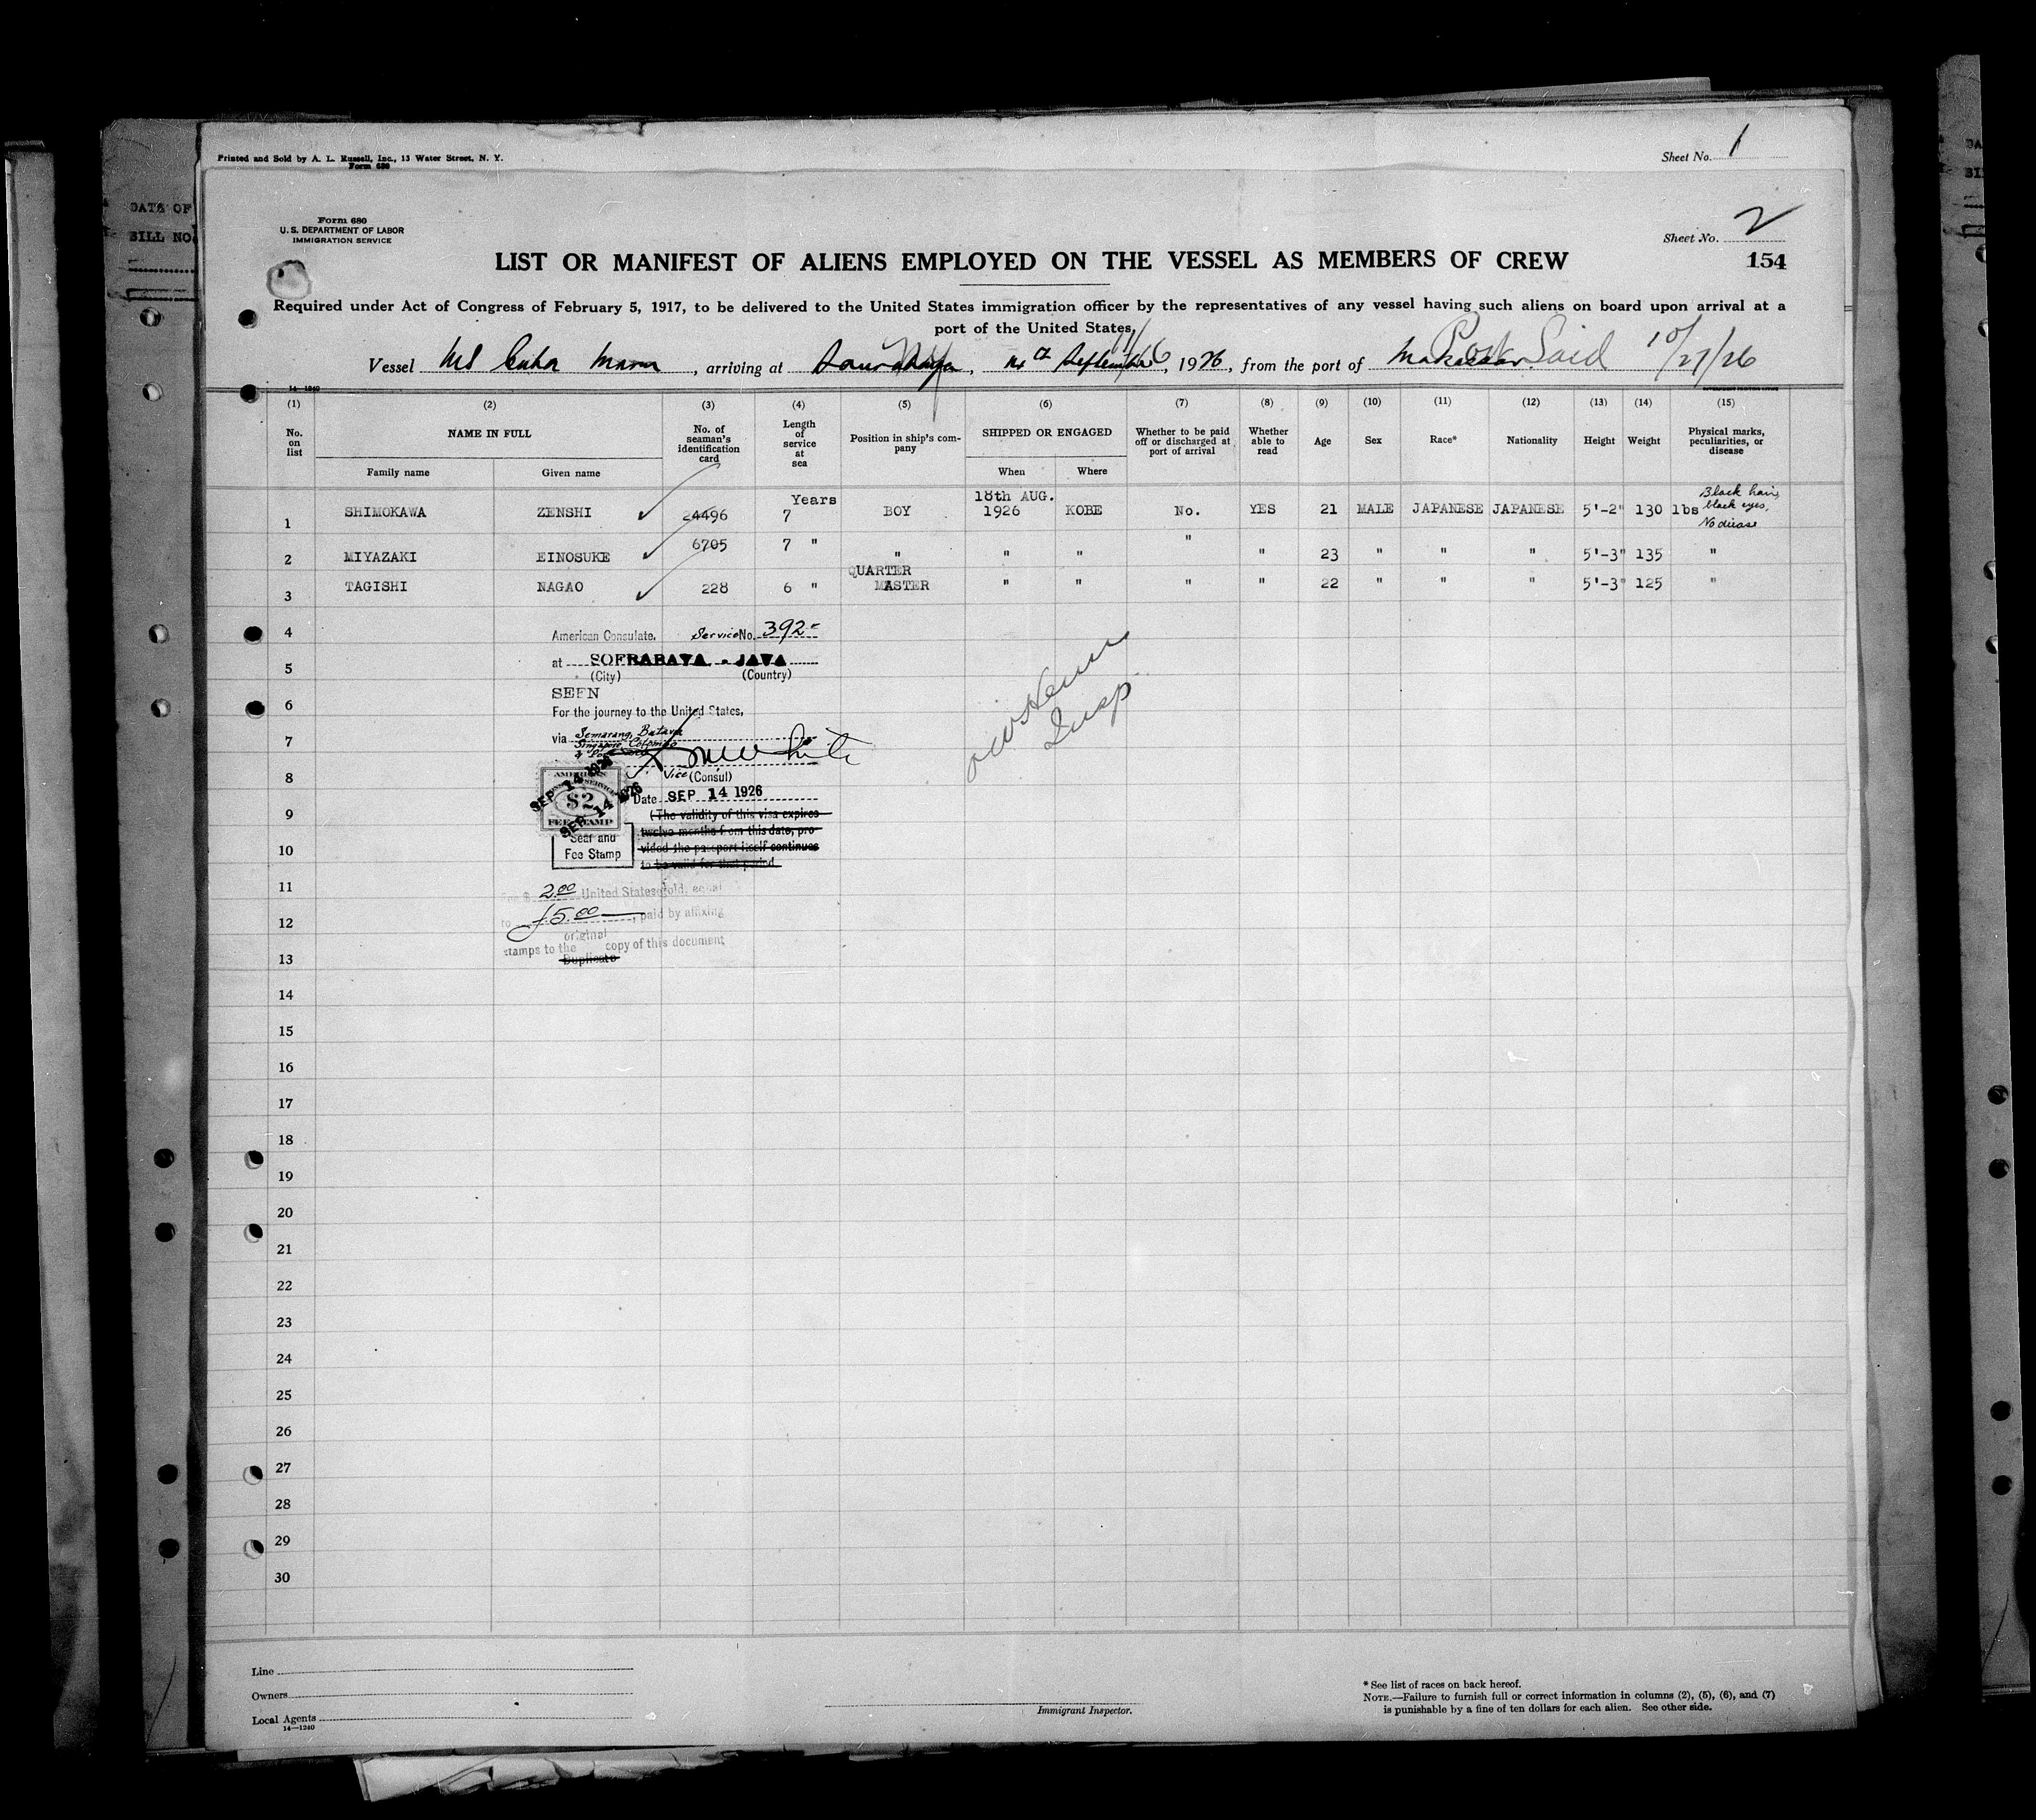 Printed and Sold by A. L. Russell, Inc., 13 Water Street, N. Y.
Form 680
Sheet No. 1
DATE OF
BILL NO
Form 680
U. S. DEPARTMENT OF LABOR
IMMIGRATION SERVICE
Sheet No. 2
LIST OR MANIFEST OF ALIENS EMPLOYED ON THE VESSEL AS MEMBERS OF CREW
154
Required under Act of Congress of February 5, 1917, to be delivered to the United States immigration officer by the representatives of any vessel having such aliens on board upon arrival at a
port of the United States,
Vessel MS Cuba Maru, arriving at Sourabaya NY, 14 September 11/16, 1926, from the port of Makassar Port Said 10/27/26
14—1240
(1) (2) (3) (4) (5) (6) (7) (8) (9) (10) (11) (12) (13) (14) (15)
No. on list NAME IN FULL No. of seaman's identification card Length of service at sea Position in ship's company SHIPPED OR ENGAGED Whether to be paid off or discharged at port of arrival Whether able to read Age Sex Race* Nationality Height Weight Physical marks, peculiarities, or disease
Family name Given name When Where
1 SHIMOKAWA ZENSHI 24496 Years 7 BOY 18th AUG. 1926 KOBE No. YES 21 MALE JAPANESE JAPANESE 5'-2" 130 lbs Black hair, black eyes, No diease
2 MIYAZAKI EINOSUKE 6705 7 " " " " " " 23 " " " 5'-3" 135 "
3 TAGISHI NAGAO 228 6 " QUARTER MASTER " " " " 22 " " " 5'-3" 125 "
4
5
6
7
8
9
10
11
12
13
14
15
16
17
18
19
20
21
22
23
24
25
26
27
28
29
30
American Consulate. Service No. 392
at SOERABAYA - JAVA
(City) (Country)
SEEN
For the journey to the United States,
via Semarang, Batavia
Singapore, Colombo
White
Vice (Consul)
Date SEP 14 1926
AMERICAN
SERVICE
$2
FEE STAMP
SEP 14 1926
SEP 14 1926
(The validity of this visa expires
twelve months from this date, pro
vided the passport itself continues
to be valid for that period.
Seal and
Fee Stamp
$ 2.00 United States gold, equal
to f5.00, paid by affixing
original
stamps to the copy of this document
Duplicate
Insp
Line
Owners
Local Agents
14—1240
Immigrant Inspector.
* See list of races on back hereof.
NOTE.—Failure to furnish full or correct information in columns (2), (5), (6), and (7)
is punishable by a fine of ten dollars for each alien. See other side.